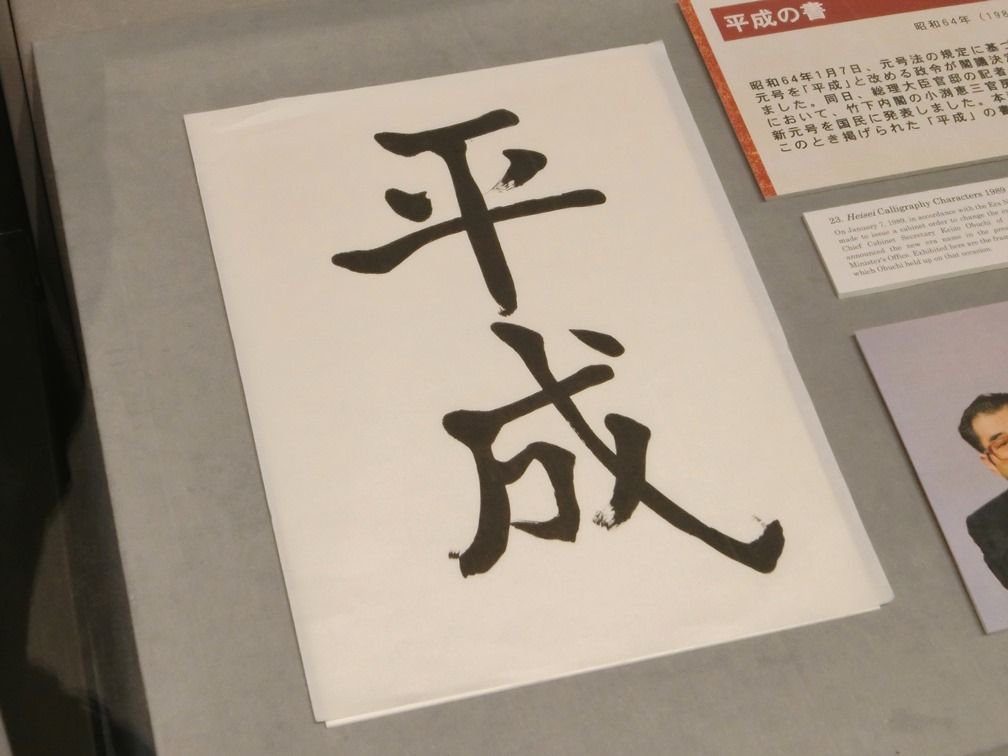 平成
平成の書
昭和64年(198
昭和64年1月7日、元号法の規定に基づ
元号を「平成」と改める政令が閣議決定
ました。同日、総理大臣官邸の記者
において、竹下内閣の小渕恵三官房
新元号を国民に発表しました。本
このとき掲げられた「平成」の書
23. Heisei Calligraphy Characters 1989
On January 7, 1989, in accordance with the Era N
made to issue a cabinet order to change the
Chief Cabinet Secretary Keizo Obuchi of
announced the new era name in the pre
Minister's Office. Exhibited here are the fram
which Obuchi held up on that occasion.